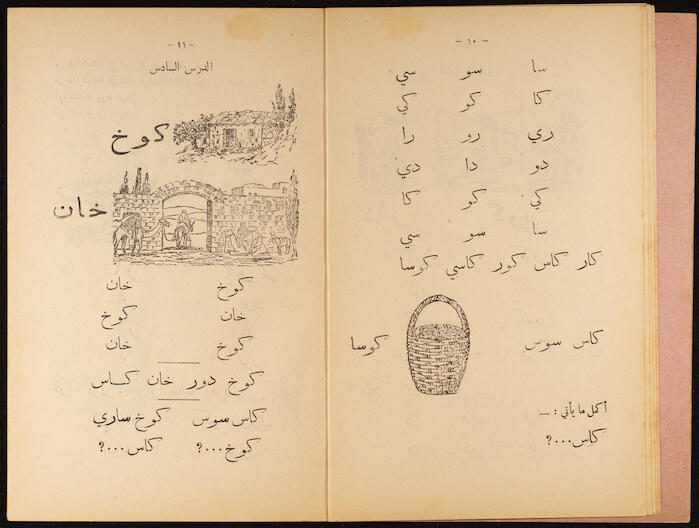 - ١٠ -
سا سو سي
كا كو كي
ري رو را
دو دا دي
كي كو كا
سا سو سي
كار كاس كور كاسي كوسا
كاس سوس كوسا
أكمل ما يأتي : —
كاس...؟
- ١١ -
الدرس السادس
كوخ
خان
كوخ خان
خان كوخ
كوخ خان
كوخ دور خان كاس
كاس سوس كوخ ساري
كوخ...؟ كاس...؟